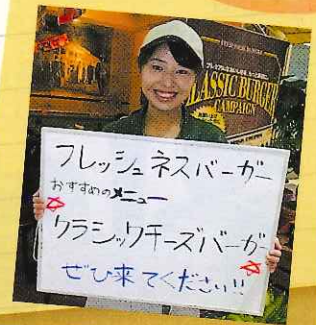 CLASSIC BURGER
CAMPAIGN
フレッシュネスバーガー
おすすめのメニュー
クラシックチーズバーガー
ぜひ来てください!!